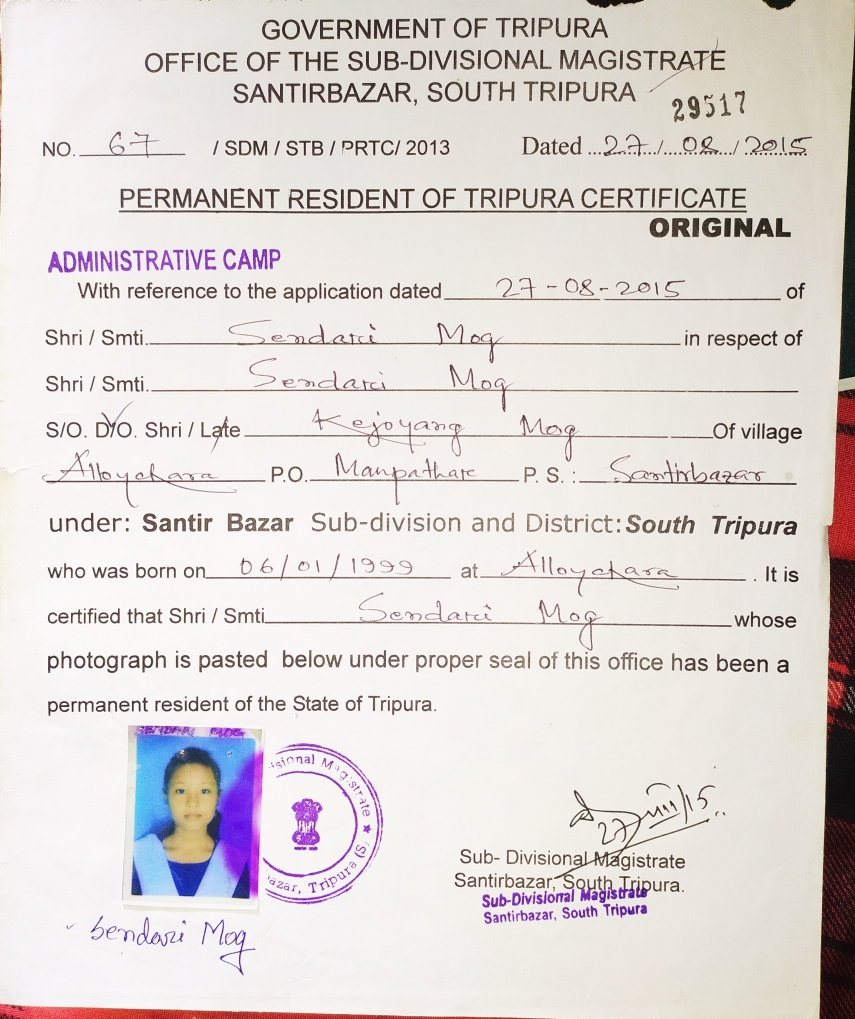 GOVERNMENT OF TRIPURA
OFFICE OF THE SUB-DIVISIONAL MAGISTRATE
SANTIRBAZAR, SOUTH TRIPURA
29517
NO. 67 / SDM / STB / PRTC/ 2013 Dated ...27../...08../..2015
PERMANENT RESIDENT OF TRIPURA CERTIFICATE
ORIGINAL
ADMINISTRATIVE CAMP
With reference to the application dated 27-08-2015 of
Shri / Smti. Sendari Mog in respect of
Shri / Smti. Sendari Mog
S/O. D/O. Shri / Late Kejoyang Mog Of village
Alloychara P.O. Manpathar P. S. : Santirbazar
under: Santir Bazar Sub-division and District: South Tripura
who was born on 06/01/1999 at Alloychara . It is
certified that Shri / Smti Sendari Mog whose
photograph is pasted below under proper seal of this office has been a
permanent resident of the State of Tripura.
SENDARI MOG
isional Magistrate ★
bazar, Tripura (S
27/VIII/15
Sub- Divisional Magistrate
Santirbazar, South Tripura.
Sub-Divisional Magistrate
Santirbazar, South Tripura
Sendari Mog